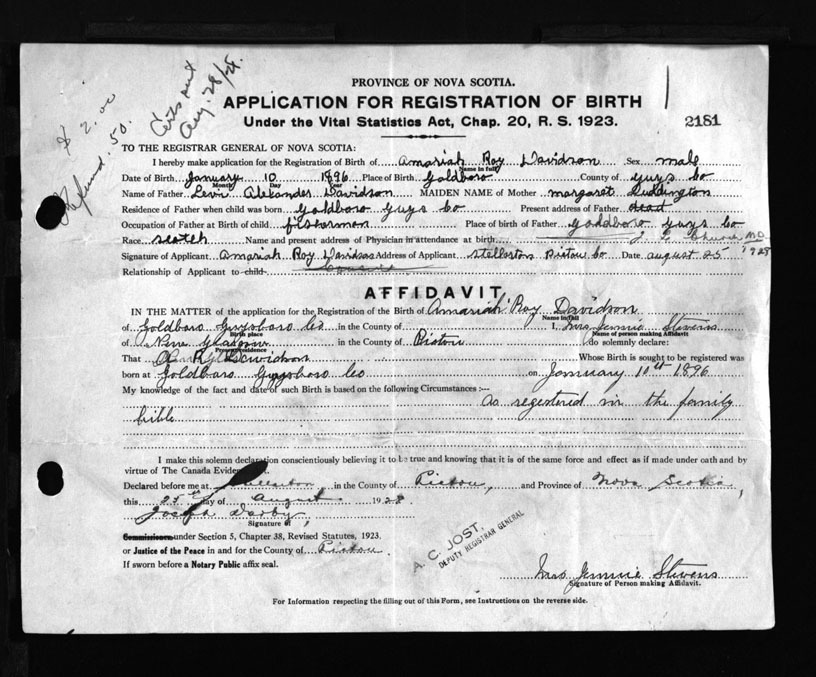 $ 2.00
Refund .50.
Certs sent
Aug. 28/28.
PROVINCE OF NOVA SCOTIA.
APPLICATION FOR REGISTRATION OF BIRTH
Under the Vital Statistics Act, Chap. 20, R. S. 1923.
2181
TO THE REGISTRAR GENERAL OF NOVA SCOTIA:
I hereby make application for the Registration of Birth of Amariah Roy Davidson Sex male
Name in full
Date of Birth January 10 1896 Place of Birth Goldboro County of Guys Co
Month Day Year
Name of Father Levi Alexander Davidson MAIDEN NAME of Mother Margaret Luddington
Residence of Father when child was born Goldboro Guys Co Present address of Father dead
Occupation of Father at Birth of child fisherman Place of birth of Father Goldboro Guys Co
Race Scotch Name and present address of Physician in attendance at birth M.D.
Signature of Applicant Amariah Roy Davidson Address of Applicant Stellarton Pictou Co Date August 25 1928
Relationship of Applicant to child
AFFIDAVIT,
IN THE MATTER of the application for the Registration of the Birth of Amariah Roy Davidson
Name in full
of Goldboro Guysboro Co in the County of I, Mrs Jennie Stevens
Birth place Name of person making Affidavit
of New Glasgow in the County of Pictou do solemnly declare:
Present residence
That Davidson Whose Birth is sought to be registered was
born at Goldboro Guysboro Co on January 10th 1896
My knowledge of the fact and date of such Birth is based on the following Circumstances :—
As registered in the family
bible
I make this solemn declaration conscientiously believing it to be true and knowing that it is of the same force and effect as if made under oath and by
virtue of The Canada Evidence
Declared before me at Stellarton in the County of Pictou, and Province of Nova Scotia,
this 25 day of August 1928
Joseph Darby
Signature of
Commissioner under Section 5, Chapter 38, Revised Statutes, 1923.
or Justice of the Peace in and for the County of Pictou
If sworn before a Notary Public affix seal.
A. C. JOST,
DEPUTY REGISTRAR GENERAL
Mrs Jennie Stevens
Signature of Person making Affidavit.
For Information respecting the filling out of this Form, see Instructions on the reverse side.